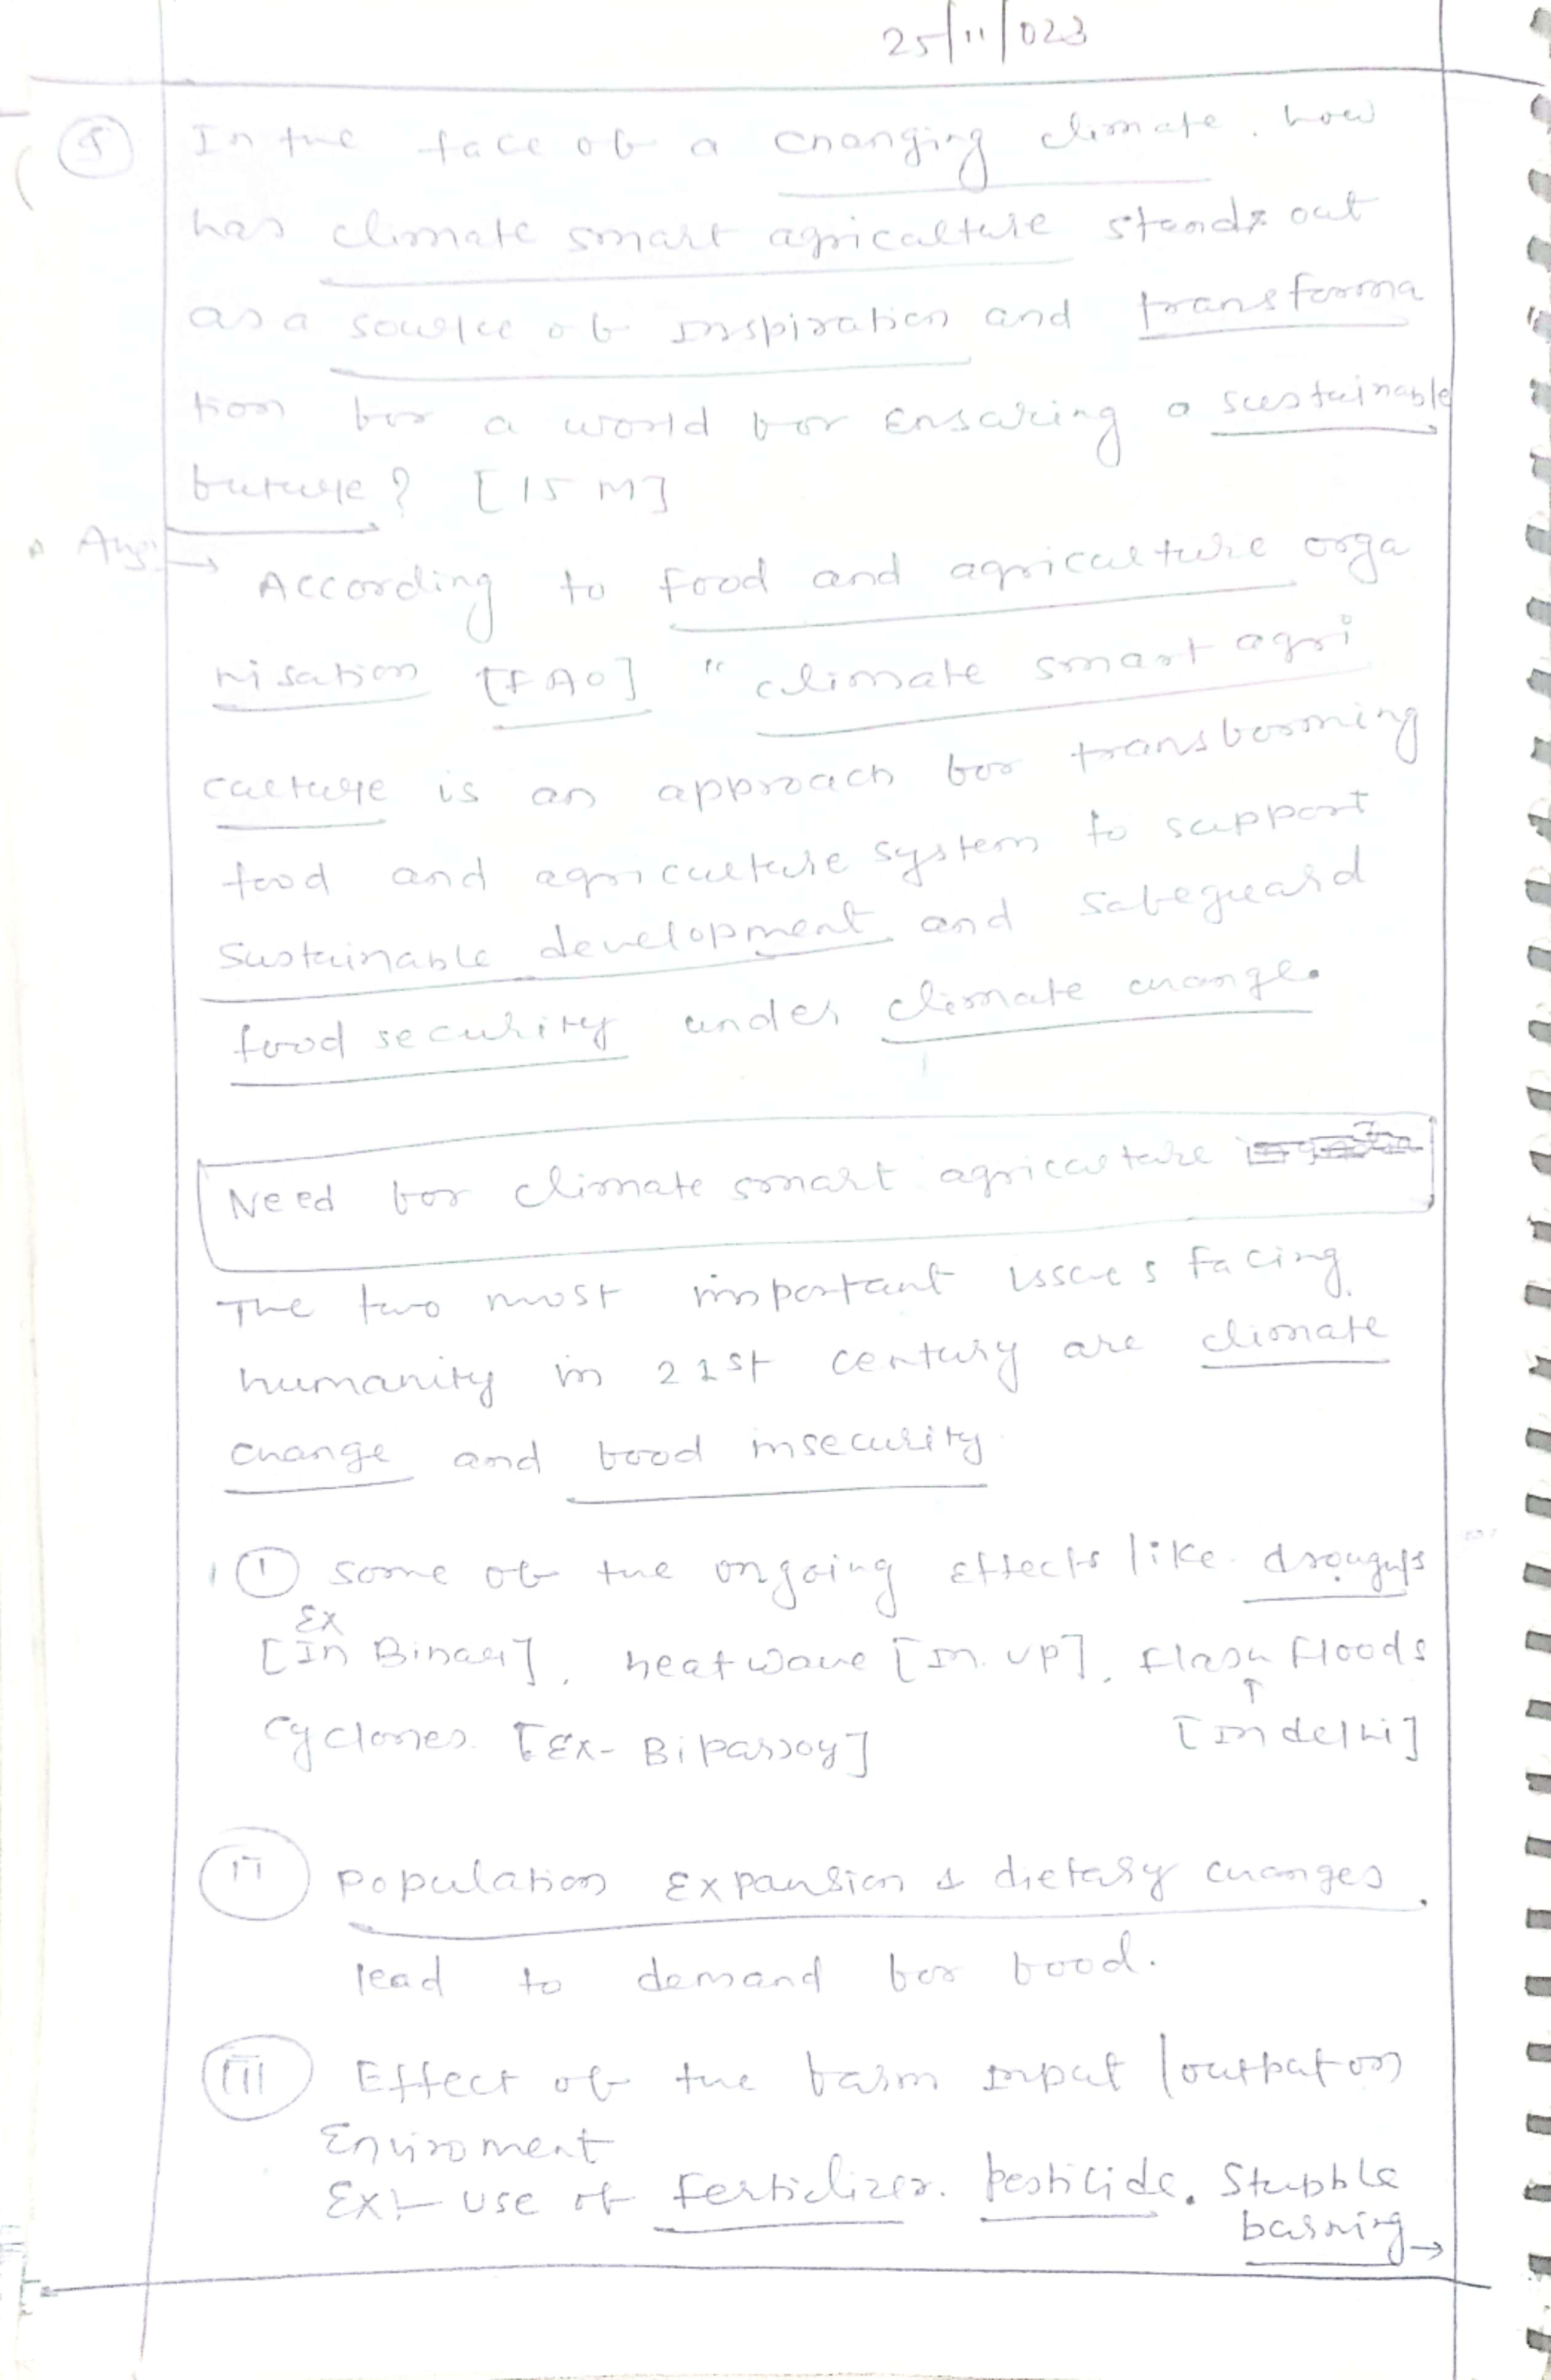 25/11/023
In the face of a changing climate, how
has climate smart agriculture stands out
as a source of inspiration and transforma
tion for a world for ensuring a sustainable
future? [15 M]
Ans → According to food and agriculture orga
nisation [FAO] "climate smart agri
culture is an approach for transforming
food and agriculture system to support
sustainable development and safeguard
food security under climate change.
Need for climate smart agriculture
The two most important issues facing
humanity in 21st century are climate
change and food insecurity.
(I) some of the ongoing effects like droughts
Ex
[In Bihar], heatwave [In UP], flash floods
↑
cyclones [Ex- Biparjoy] [In delhi]
(II) Population Expansion & dietary changes
lead to demand for food.
(III) Effect of the farm input / output on
Enviroment
Ex:- Use of Fertilizer, pesticide, Stubble
burning →